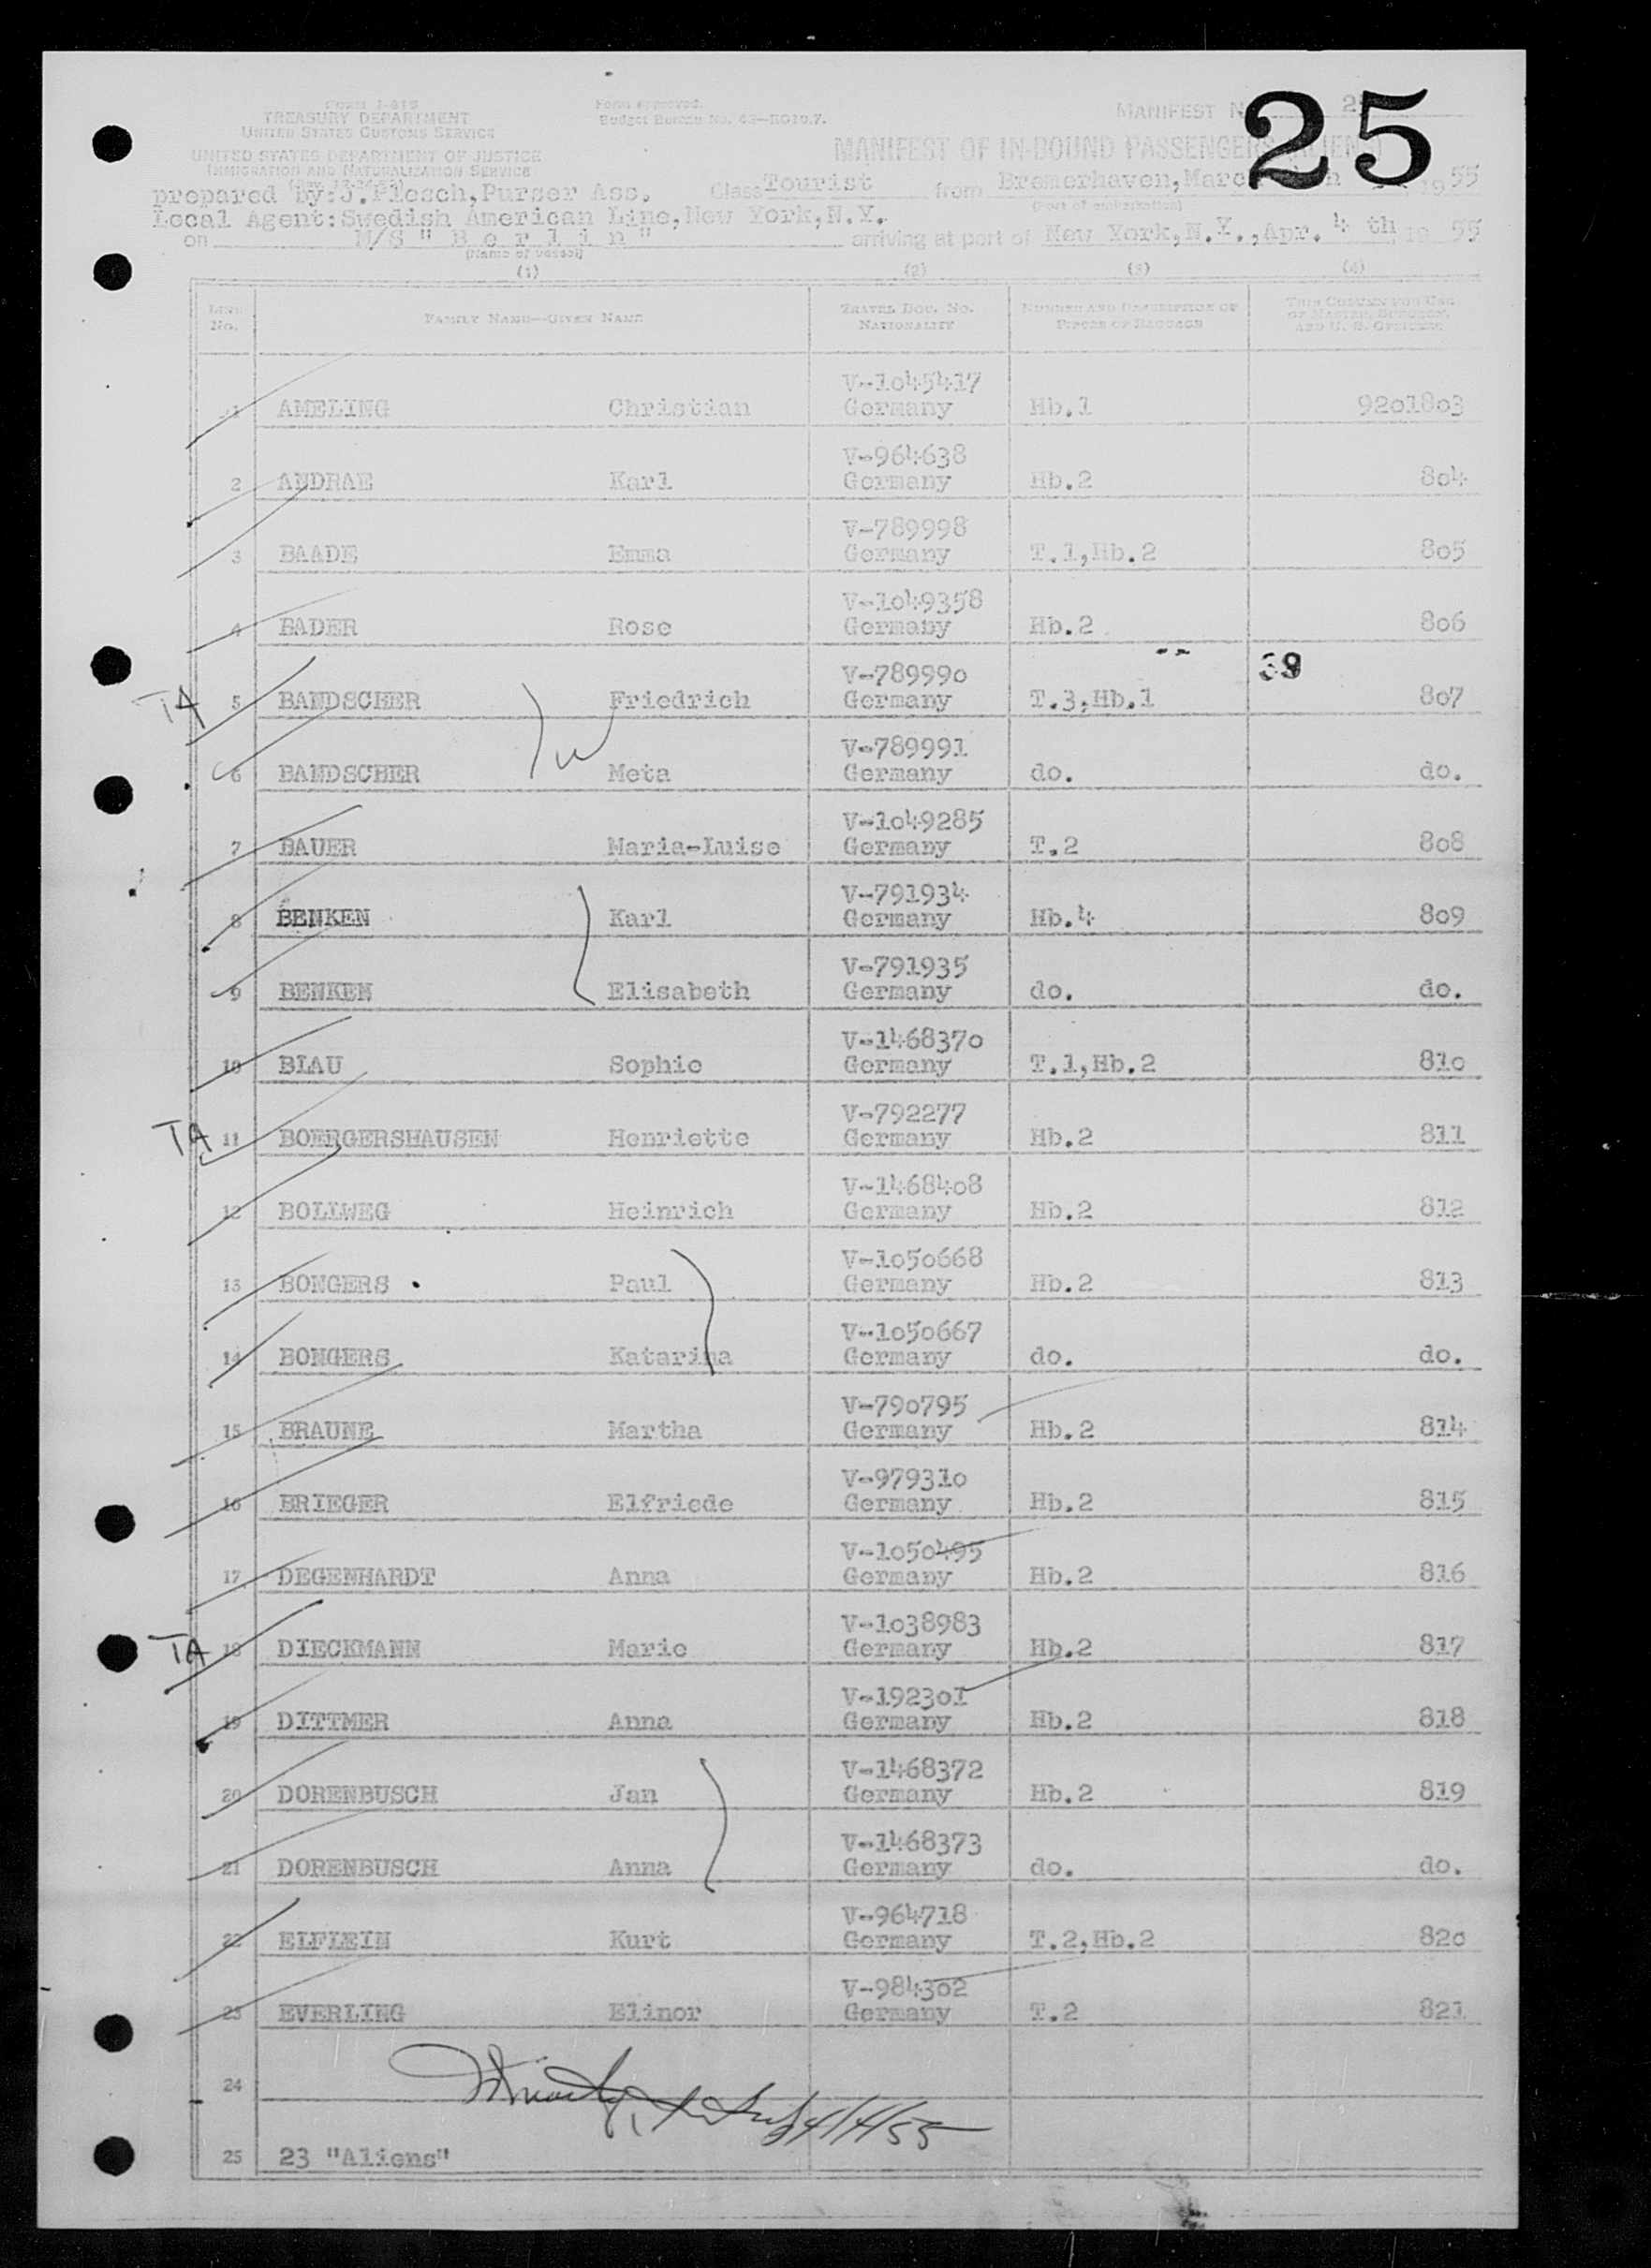 Form I-418
TREASURY DEPARTMENT
UNITED STATES CUSTOMS SERVICE
UNITED STATES DEPARTMENT OF JUSTICE
IMMIGRATION AND NATURALIZATION SERVICE
Form approved.
Budget Bureau No. 43—RO10.7.
MANIFEST
25
MANIFEST OF IN-BOUND PASSENGERS (ALIENS)
prepared by:J.Plesch,Purser Ass. Class Tourist from Bremerhaven,March 1955
(Port of embarkation)
Local Agent:Swedish American Line,New York,N.Y.
on M/S " B e r l i n " arriving at port of New York,N.Y.,Apr. 4 th 19 55
(Name of vessel)
(1) (2) (3) (4)
LINE No. FAMILY NAME—GIVEN NAME TRAVEL DOC. NO. NATIONALITY NUMBER AND DESCRIPTION OF PIECES OF BAGGAGE THIS COLUMN FOR USE OF MASTER, SURGEON, AND U. S. OFFICERS
V-1045417
1 AMELING Christian Germany Hb.1 9201803
V-964638
2 ANDRAE Karl Germany Hb.2 804
V-789998
3 BAADE Emma Germany T.1,Hb.2 805
V-1049358
4 BADER Rose Germaby Hb.2 806
39
V-789990
TA 5 BANDSCHER Friedrich Germany T.3,Hb.1 807
V-789991
6 BANDSCHER Meta Germany do. do.
V-1049285
7 BAUER Maria-Luise Germany T.2 808
V-791934
8 BENKEN Karl Germany Hb.4 809
V-791935
9 BENKEN Elisabeth Germany do. do.
V-1468370
10 BLAU Sophie Germany T.1,Hb.2 810
V-792277
TA 11 BOERGERSHAUSEN Henriette Germany Hb.2 811
V-1468408
12 BOLLWEG Heinrich Germany Hb.2 812
V-1050668
13 BONGERS Paul Germany Hb.2 813
V-1050667
14 BONGERS Katarina Germany do. do.
V-790795
15 BRAUNE Martha Germany Hb.2 814
V-979310
16 BRIEGER Elfriede Germany Hb.2 815
V-1050495
17 DEGENHARDT Anna Germany Hb.2 816
V-1038983
TA 18 DIECKMANN Marie Germany Hb.2 817
V-192301
19 DITTMER Anna Germany Hb.2 818
V-1468372
20 DORENBUSCH Jan Germany Hb.2 819
V-1468373
21 DORENBUSCH Anna Germany do. do.
V-964718
22 ELFLEIN Kurt Germany T.2,Hb.2 820
V-984302
23 EVERLING Elinor Germany T.2 821
24
4/4/55
25 23 "Aliens"